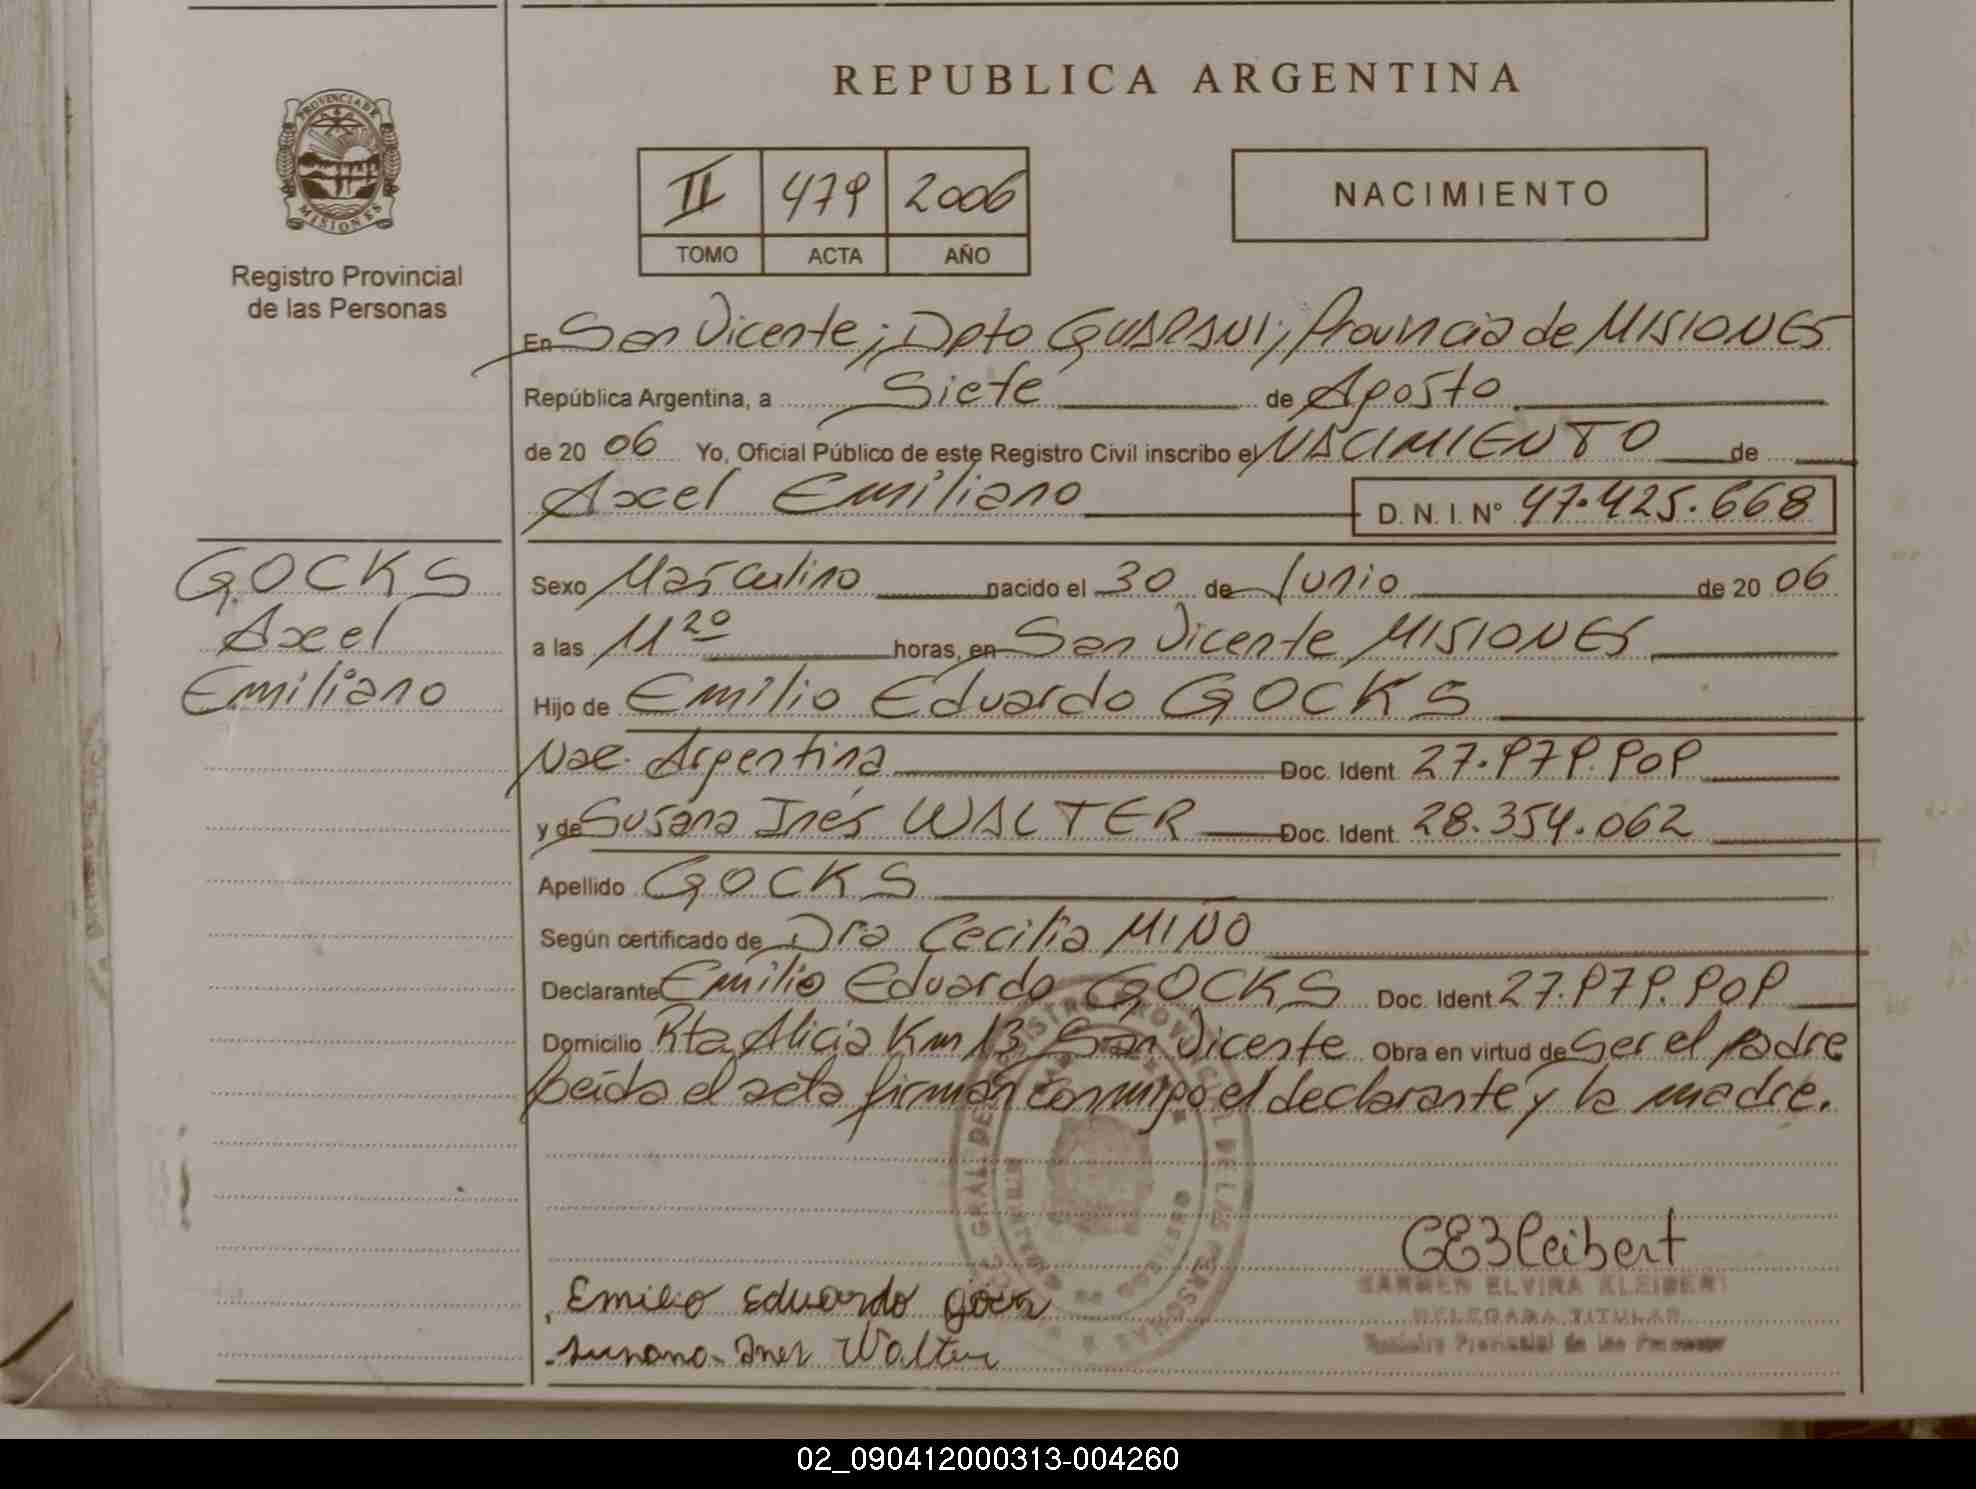 REPUBLICA ARGENTINA
PROVINCIA DE
MISIONES
Registro Provincial
de las Personas
II 479 2006
TOMO ACTA AÑO
NACIMIENTO
En San Vicente; Dpto GUARANI; Provincia de MISIONES
República Argentina, a Siete de Agosto
de 20 06 Yo, Oficial Público de este Registro Civil inscribo el NACIMIENTO de
Axcel Emiliano D. N. I. N° 47.425.668
GOCKS
Axel
Emiliano
Sexo Masculino nacido el 30 de Junio de 20 06
a las 11 20 horas, en San Vicente MISIONES
Hijo de Emilio Eduardo GOCKS
Nac. Argentina Doc. Ident. 27.979.909
y de Susana Inés WALTER Doc. Ident. 28.354.062
Apellido GOCKS
Según certificado de Dra Cecilia MIÑO
Declarante Emilio Eduardo GOCKS Doc. Ident. 27.979.909
Domicilio Rta Alicia Km 13 San Vicente Obra en virtud de Ser el padre
Leída el acta firman conmigo el declarante y la madre.
Emilio Eduardo
Susana Ines Walter
CEKleibert
CARMEN ELVIRA KLEIBERT
DELEGADA TITULAR
Registro Provincial de las Personas
02_090412000313-004260